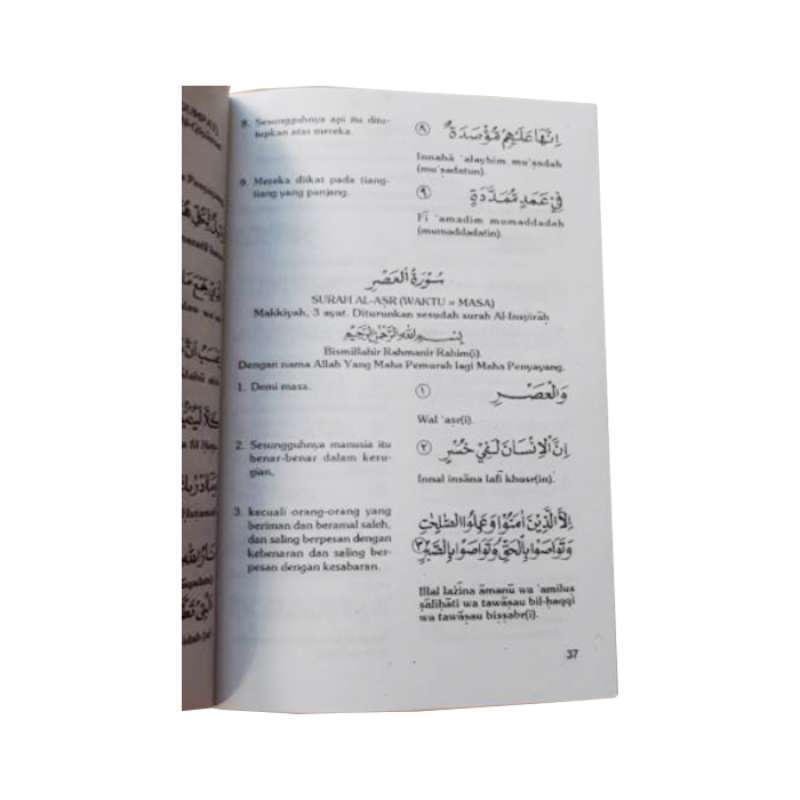 8. Sesungguhnya api itu ditu-
tupkan atas mereka.
اِنَّهَا عَلَيْهِمْ مُّؤْصَدَةٌ ۙ ٨
Innahā 'alayhim mu'ṣadah
(mu'ṣadatun).
9. Mereka diikat pada tiang-
tiang yang panjang.
فِيْ عَمَدٍ مُّمَدَّدَةٍ ٩
Fī 'amadim mumaddadah
(mumaddadatin).
سُوْرَةُ الْعَصْرِ
SURAH AL-AṢR (WAKTU = MASA)
Makkiyah, 3 ayat. Diturunkan sesudah surah Al-Insyirāḥ
بِسْمِ اللّٰهِ الرَّحْمٰنِ الرَّحِيْمِ
Bismillahir Rahmanir Rahim(i).
Dengan nama Allah Yang Maha Pemurah lagi Maha Penyayang.
1. Demi masa.
وَالْعَصْرِ ١
Wal 'aṣr(i).
2. Sesungguhnya manusia itu
benar-benar dalam keru-
gian,
اِنَّ الْاِنْسَانَ لَفِيْ خُسْرٍ ٢
Innal insāna lafī khusr(in).
3. kecuali orang-orang yang
beriman dan beramal saleh,
dan saling berpesan dengan
kebenaran dan saling ber-
pesan dengan kesabaran.
اِلَّا الَّذِيْنَ اٰمَنُوْا وَعَمِلُوا الصّٰلِحٰتِ
وَتَوَاصَوْا بِالْحَقِّ وَتَوَاصَوْا بِالصَّبْرِ ٣
Illal lażīna āmanū wa 'amilus
ṣāliḥāti wa tawāṣau bil-ḥaqqi
wa tawāṣau biṣṣabr(i).
37